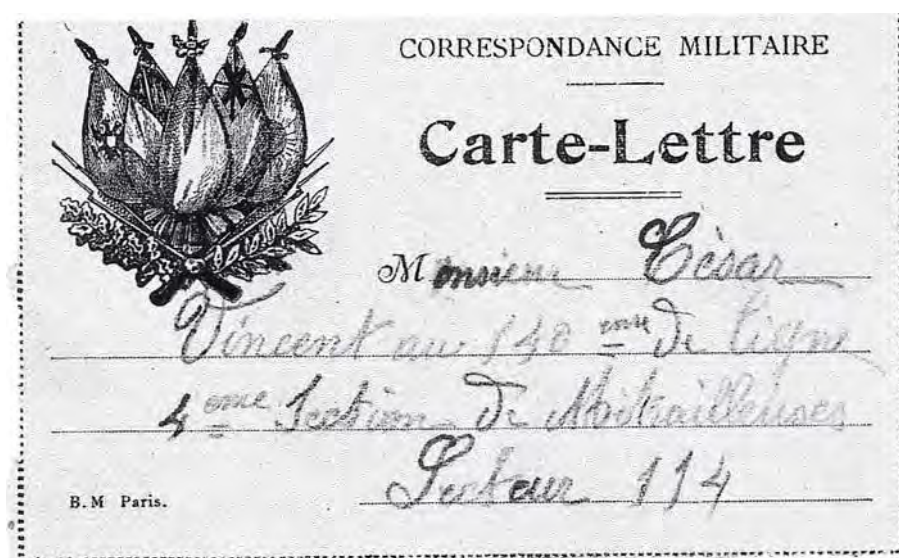 CORRESPONDANCE MILITAIRE
Carte-Lettre
Monsieur César
Vincent au 140 eme de Ligne
4 eme Section de Mitrailleuses
Secteur 114
B.M Paris.